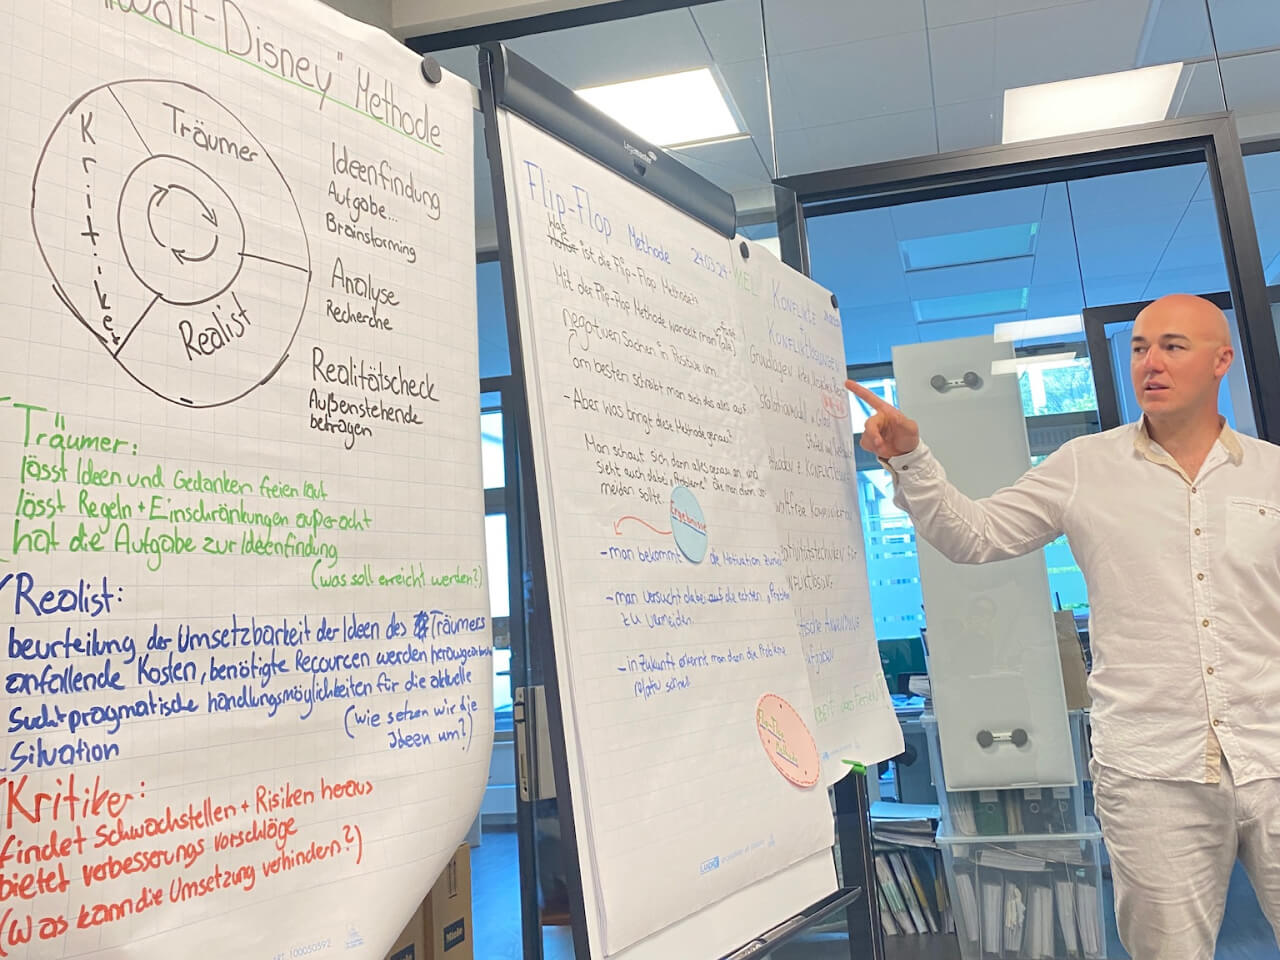 "Walt-Disney" Methode
Kritiker
Träumer
Realist
Ideenfindung
Aufgabe...
Brainstorming
Analyse
Recherche
Realitätscheck
Außenstehende
befragen
Träumer:
lässt Ideen und Gedanken freien lauf
lässt Regeln + Einschränkungen außer acht
hat die Aufgabe zur Ideenfindung
(was soll erreicht werden?)
Realist:
beurteilung der Umsetzbarkeit der Ideen des Träumers
anfallende Kosten, benötigte Recourcen werden
sucht pragmatische handlungsmöglichkeiten für die aktuelle
Situation
(wie setzen wir die
Ideen um?)
Kritiker:
findet Schwachstellen + Risiken heraus
bietet verbesserungs vorschläge
(Was kann die Umsetzung verhindern?)
100050592
Legamaster
Flip-Flop Methode 24.03.24
Was
ist die Flip-Flop Methode?
Mit der Flip-Flop Methode wandelt man (alle)
negativen Sachen in Positive um.
am besten schreibt man sich das alles auf
- Aber was bringt diese Methode genau?
Man schaut sich dann alles genau an und
sieht auch dabei "Probleme" die man dann ver-
meiden sollte.
Ergebnisse
- man bekommt die Motivation zurück
- man versucht dabei auf die echten "Probleme
zu vermeiden.
- in Zukunft erkennt man dann die Probleme
relativ schnell
Flip-Flop
Methode
KONFLIKTE
+
KONFLIKTLÖSUNGEN
Grundlagen
Miele